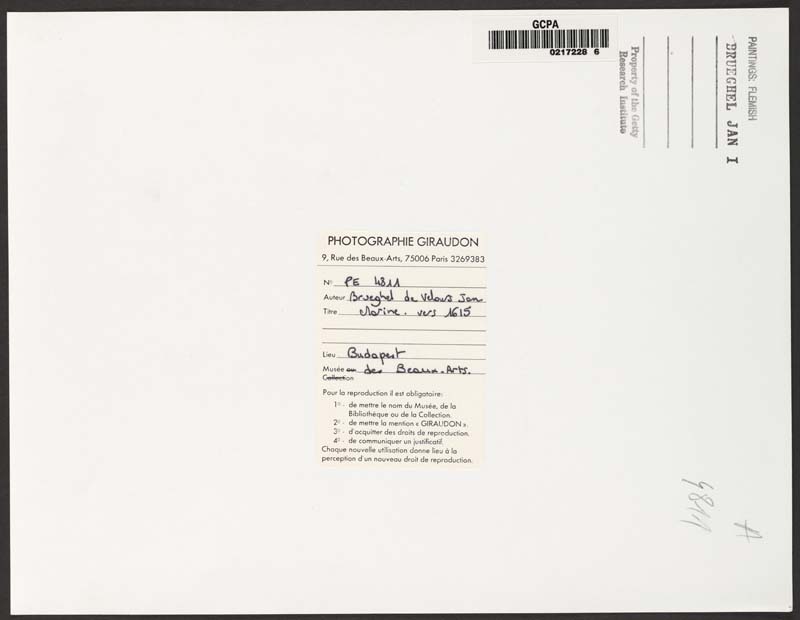 GCPA
0217228 6
PAINTINGS: FLEMISH
BRUEGHEL JAN I
Property of the Getty
Research Institute
PHOTOGRAPHIE GIRAUDON
9, Rue des Beaux-Arts, 75006 Paris 3269383
N° PE 4811
Auteur Brueghel de Velours Jan
Titre Marine. vers 1615
Lieu Budapest
Musée ou des Beaux-Arts.
Collection
Pour la reproduction il est obligatoire:
1° - de mettre le nom du Musée, de la
Bibliothèque ou de la Collection.
2° - de mettre la mention « GIRAUDON ».
3° - d'acquitter des droits de reproduction.
4° - de communiquer un justificatif.
Chaque nouvelle utilisation donne lieu à la
perception d'un nouveau droit de reproduction.
4811
A